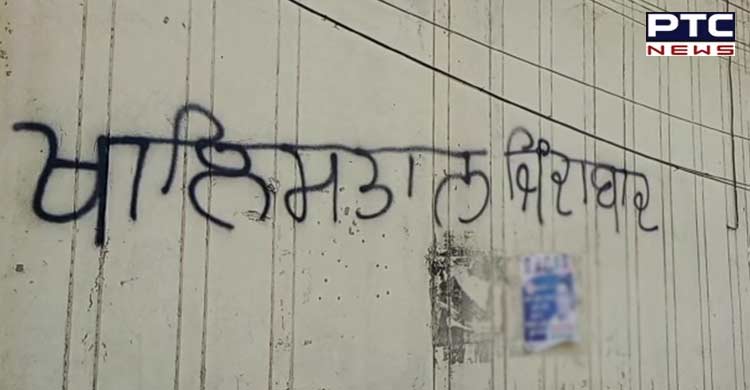 PTC
NEWS
ਖਾਲਿਸਤਾਨ ਜਿੰਦਾਬਾਦ